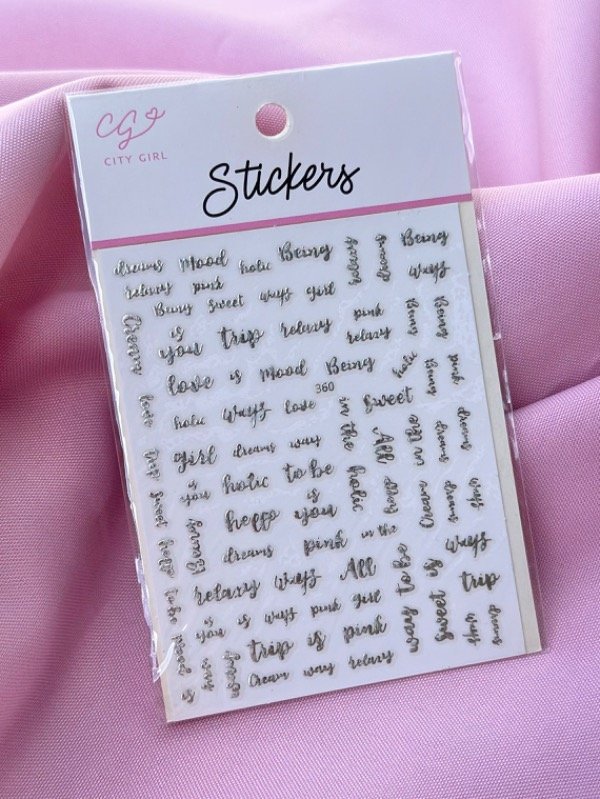 CG
CITY GIRL
Stickers
dreams Mood holic Being relaxy dreams Being
relaxy pink ways
Being sweet ways girl
Cream is you trip relaxy pink relaxy Being Being
love is Mood Being holic Being pink
360
love holic ways love in the sweet
girl dreams way All in the dreams dreams
trip is you holic to be holic
sweet hello is you Cream dreams
hello dreams pink in the ways
relaxy ways All to be ways
to be is you is ways pink girl sweet is trip
trip is pink
is Cream way relaxy dreams